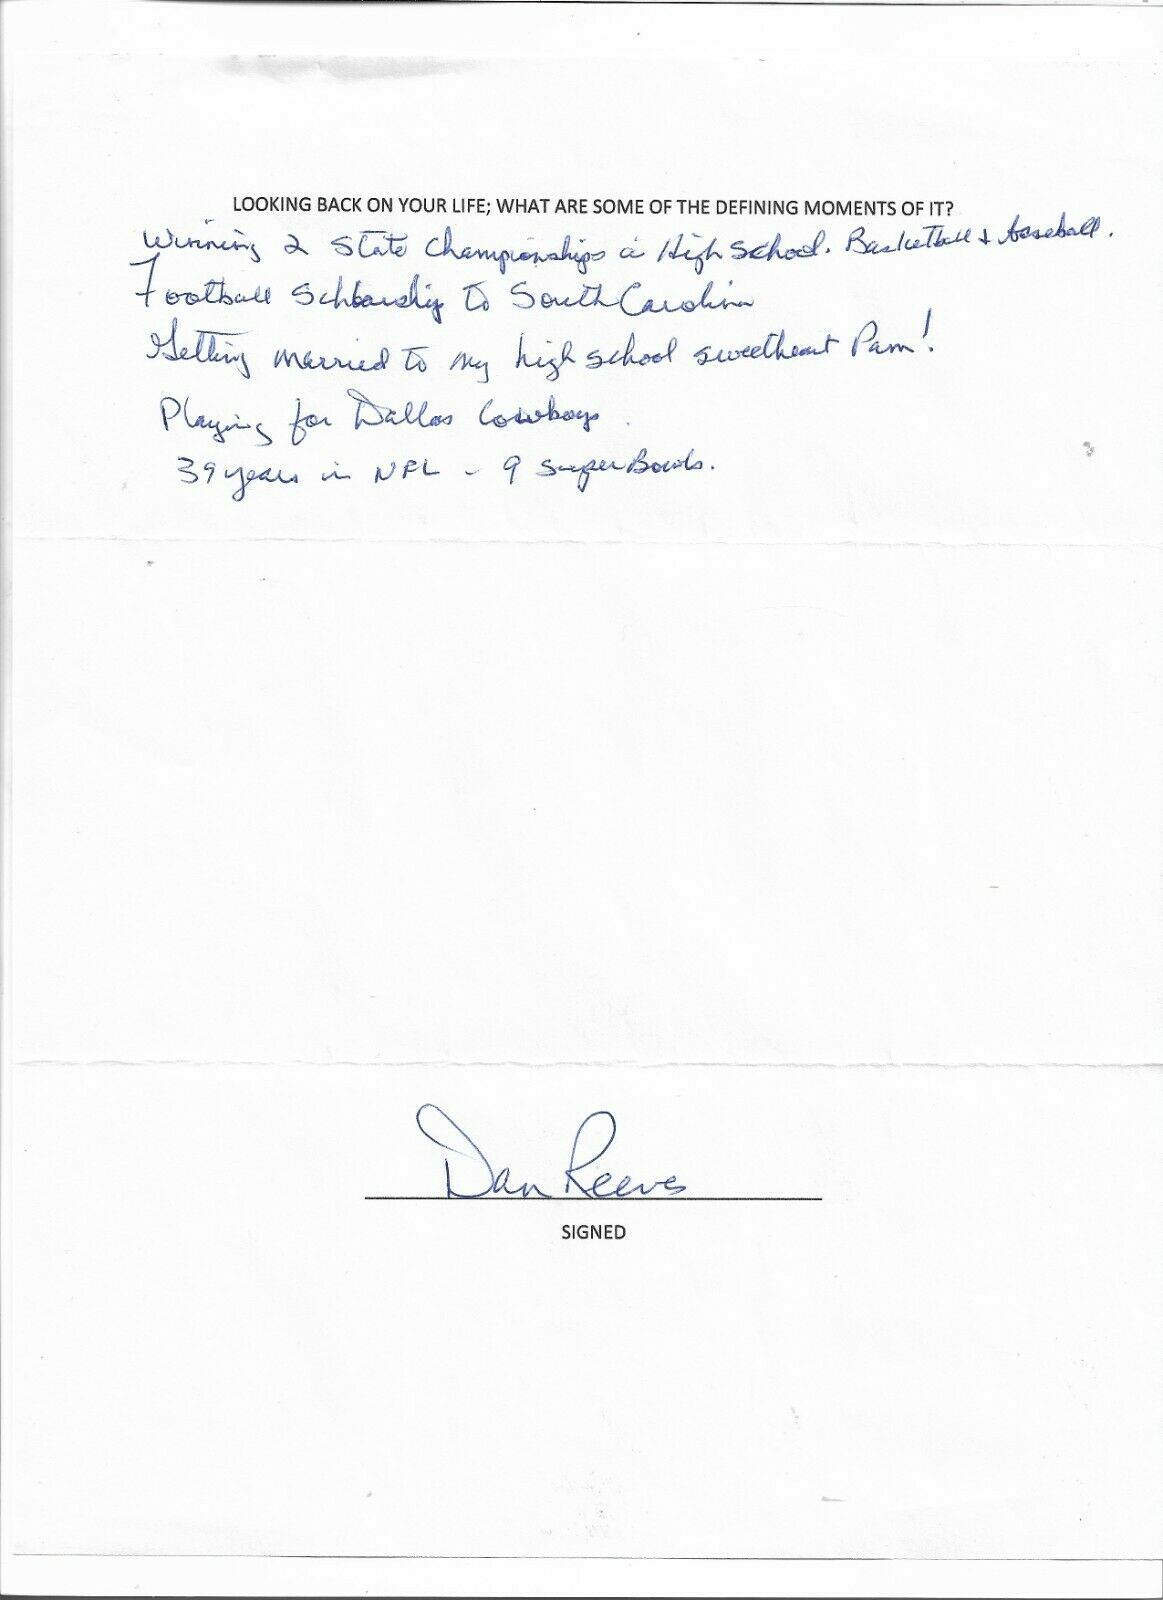 LOOKING BACK ON YOUR LIFE; WHAT ARE SOME OF THE DEFINING MOMENTS OF IT?
Winning 2 State Championships in High School. Basketball & Baseball.
Football Scholarship to South Carolina
Getting married to my high school sweetheart Pam!
Playing for Dallas Cowboys.
39 years in NFL - 9 Super Bowls.
Dan Reeves
SIGNED